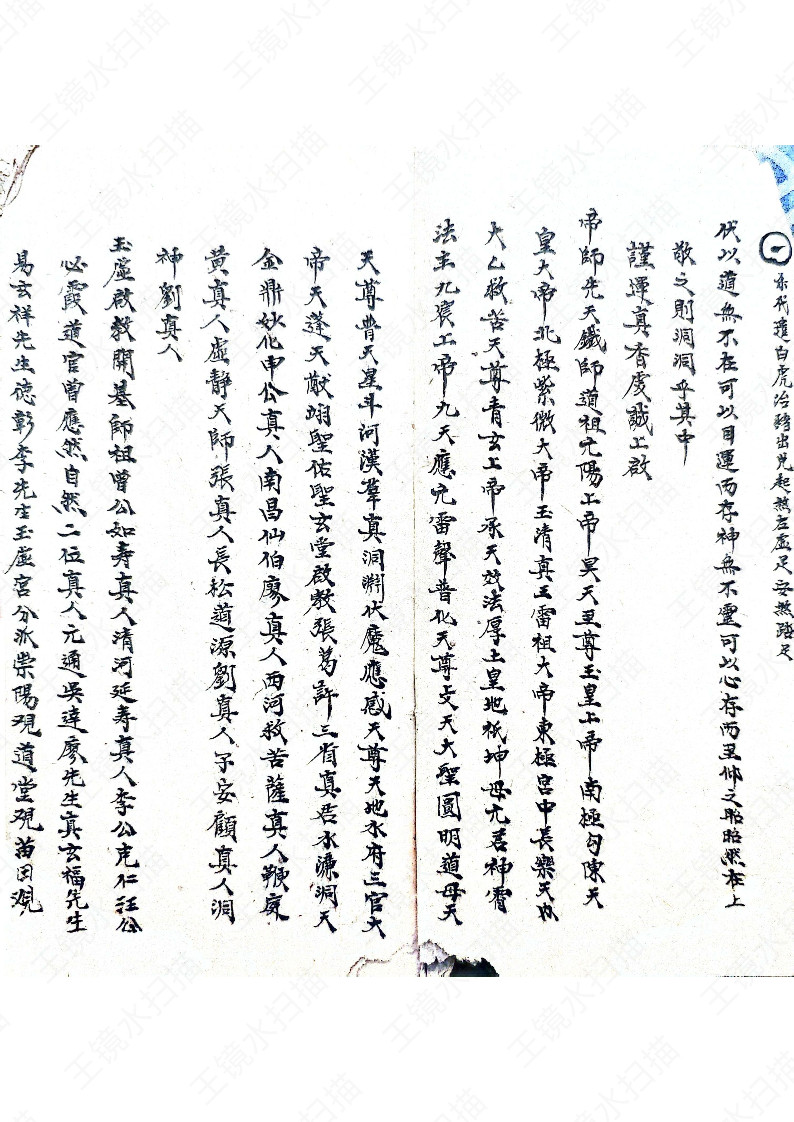 伏以道無不在可以目運而存神無不靈可以心存而至仰之昭昭然在上
敬之則洞洞乎其中
謹運真香虔誠上啟
帝師先天鐵師道祖元陽上帝昊天至尊玉皇上帝南極勾陳天
皇大帝北極紫微大帝玉清真王雷祖大帝東極宮中長樂天
太乙救苦天尊青玄上帝承天效法厚土皇地祇坤母元君神霄
法主九宸上帝九天應元雷聲普化天尊天大聖圓明道母天
天尊普天星斗河漢羣真洞淵伏魔應感天尊天地水府三官大
帝天蓬天猷翊聖佑聖玄堂啟教張葛許三省真君水濂洞天
金鼎妙化申公真人南昌仙伯廖真人西河救苦薩真人鞭
黃真人虛靜天師張真人長松道源劉真人子安顧真人洞
神劉真人
玉虛啟教開基師祖曾公如寿真人清河延寿真人李公克仁汪公
必霞道官曾應然自然二位真人元通吳達廖先生真玄福先生
易玄祥先生德彰李先生玉虛宮分派崇陽观道堂观苗田观
王镜水扫描